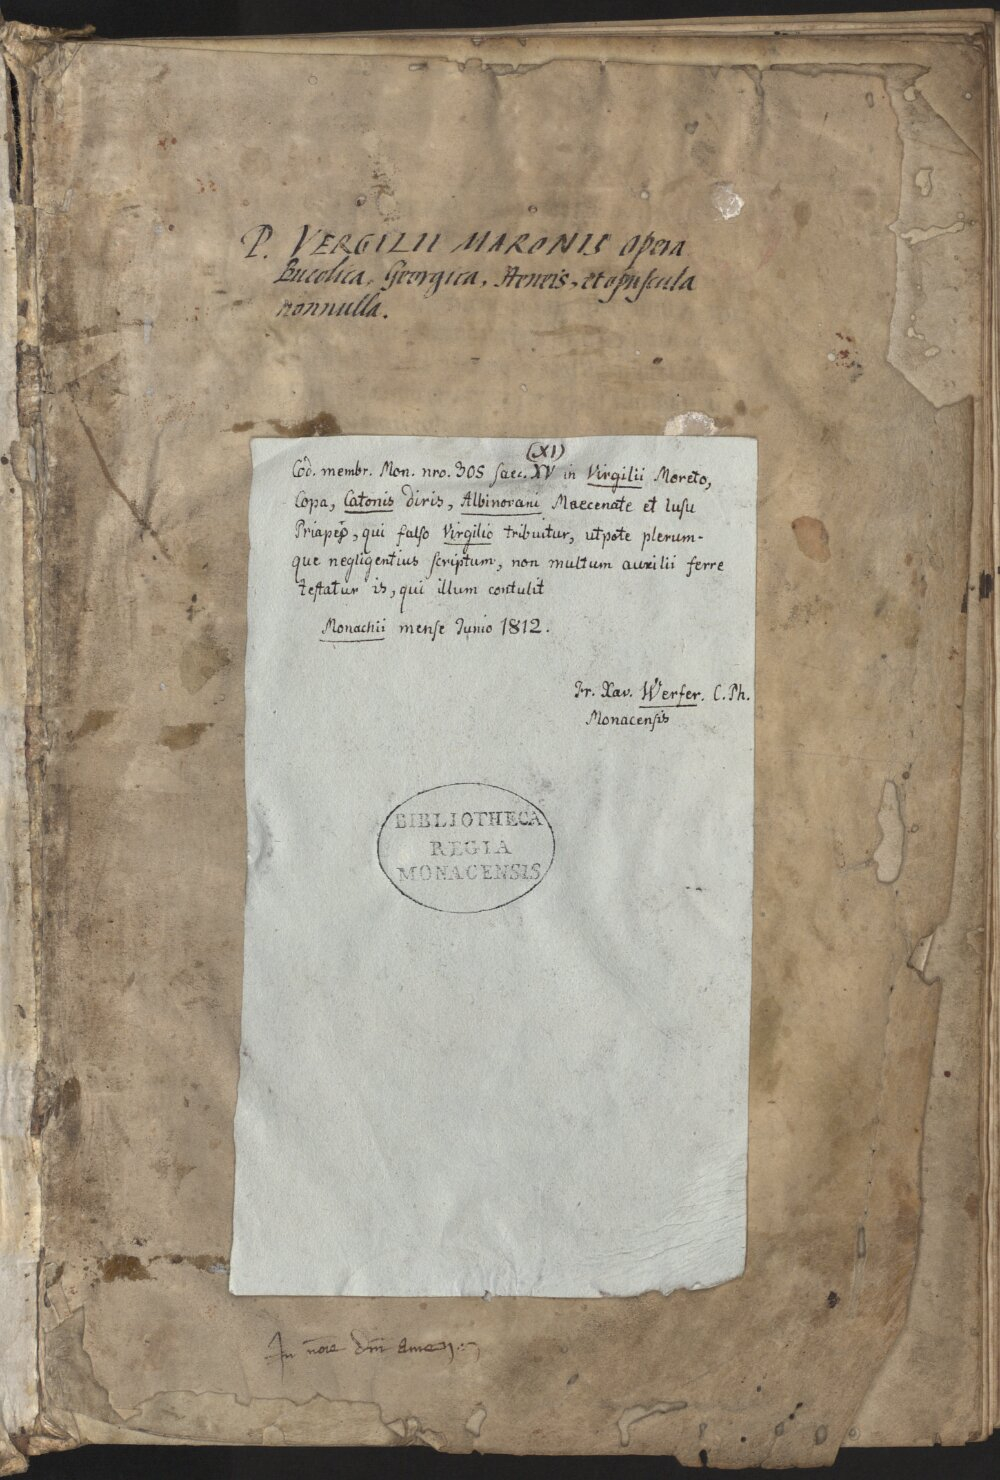 P. VERGILII MARONIS Opera
Bucolica, Georgica, Aeneis, et opuscula
nonnulla.
(XI)
Cod. membr. Mon. nro. 305 saec. XV in Virgilii Moreto,
Copa, Catonis diris, Albinovani Maecenate et lusu
Priapeo, qui falso Virgilio tribuitur, utpote plerum-
que negligentius scriptum, non multum auxilii ferre
testatur is, qui illum contulit
Monachii mense Junio 1812.
Fr. Xav. Werfer. C. Ph.
Monacensis
BIBLIOTHECA
REGIA
MONACENSIS
In noie dni Amen